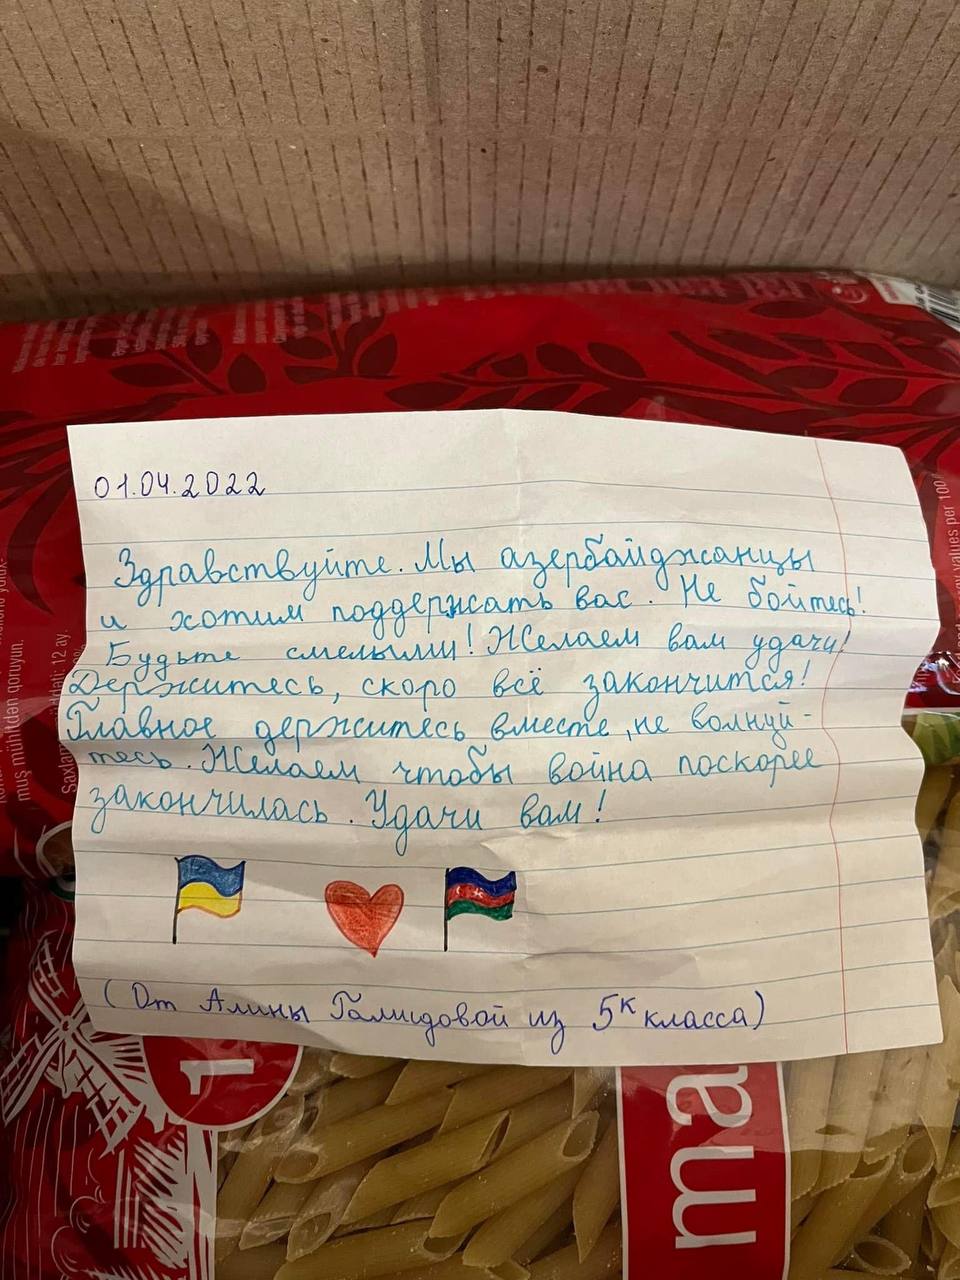 01.04.2022
Здравствуйте. Мы азербайджанцы
и хотим поддержать вас. Не бойтесь!
Будьте смелыми! Желаем вам удачи!
Держитесь, скоро всё закончится!
Главное держитесь вместе, не волнуй-
тесь. Желаем чтобы война поскорее
закончилась. Удачи вам!
(От Алины Гамидовой из 5К класса)
muş mühitdən qoruyun.
12 ay.
values per 100
1
ma